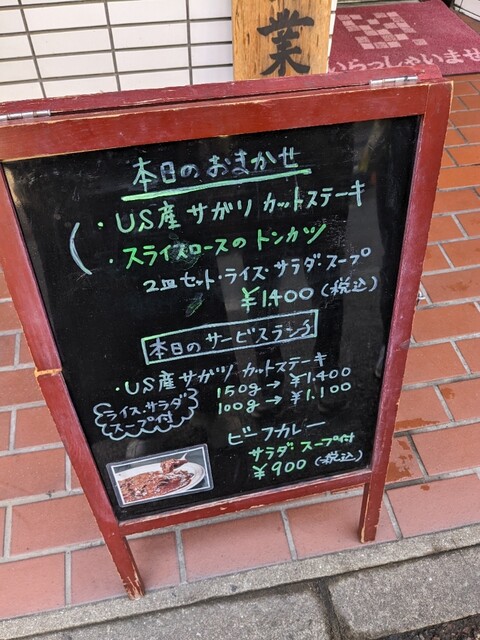 業
いらっしゃいませ
本日のおまかせ
・US産 サガリ カットステーキ
・スライスロースのトンカツ
2皿セット・ライス・サラダ・スープ
¥1.400(税込)
本日のサービスランチ
・US産サガリ カットステーキ
150g→¥1.400
100g→¥1.100
ライス、サラダ
スープ付
ビーフカレー
サラダ スープ付
¥900(税込)